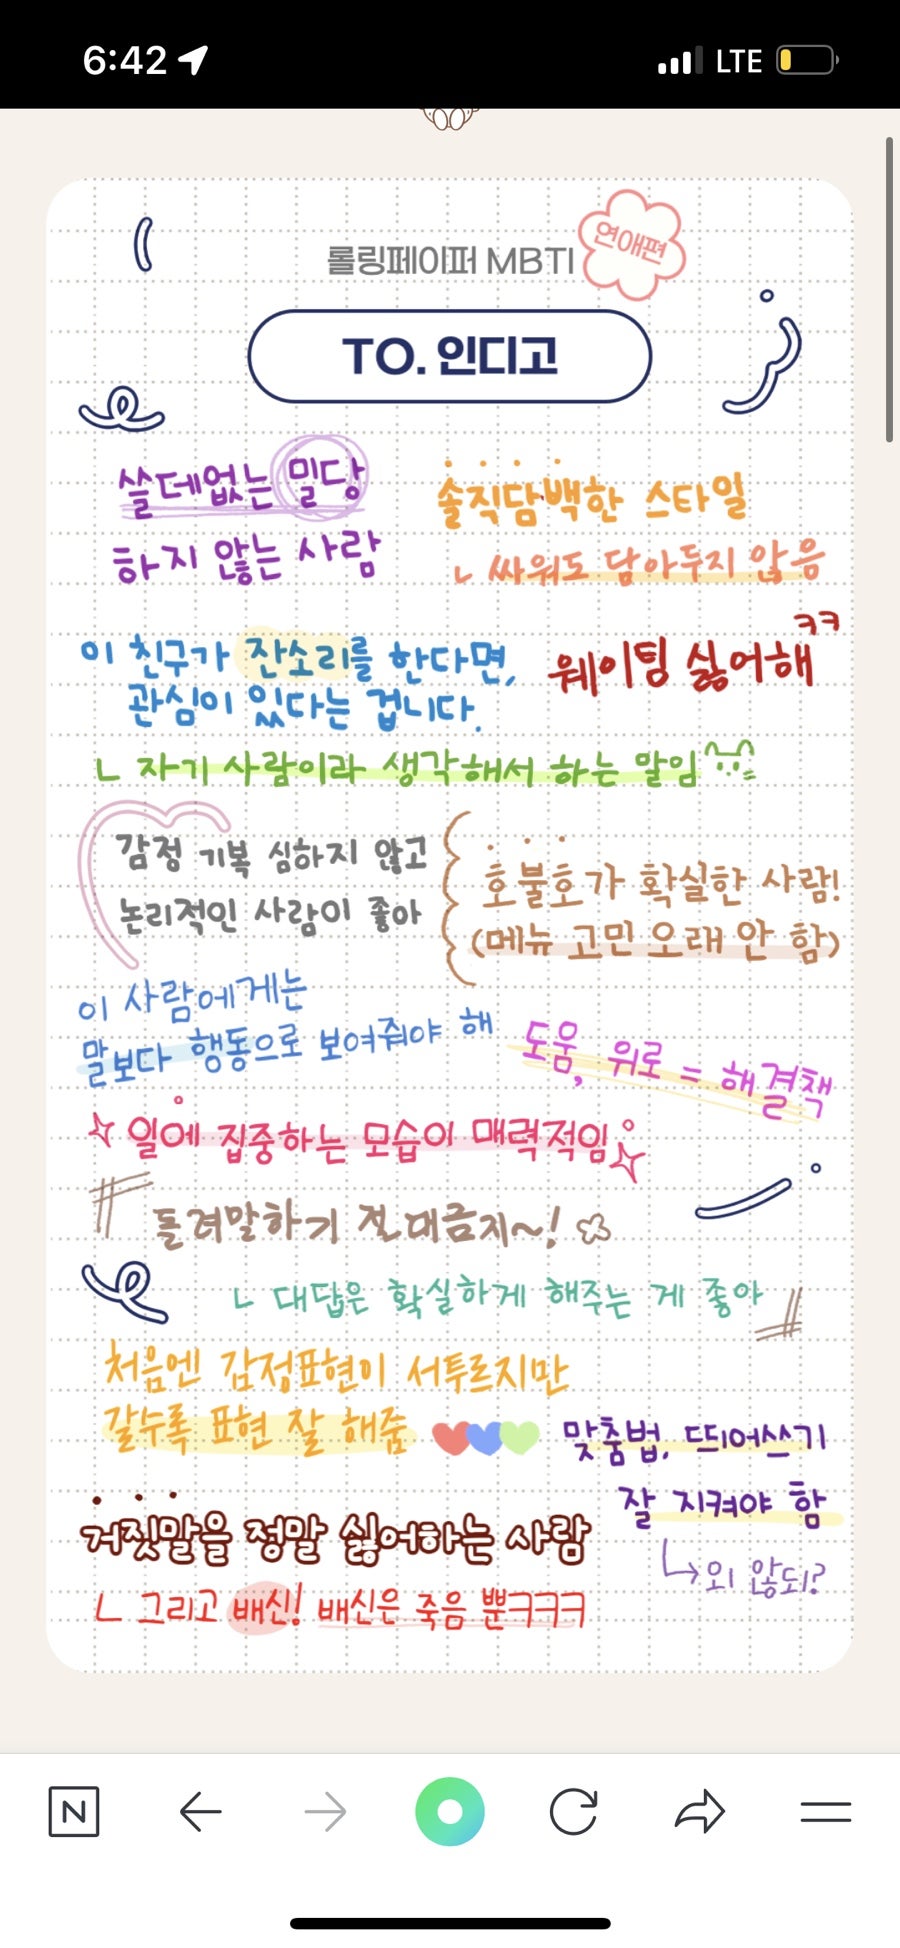 6:42
LTE
롤링페이퍼 MBTI
연애편
TO. 인디고
쓸데없는 밀당
하지 않는 사람
솔직담백한 스타일
ㄴ 싸워도 담아두지 않음
이 친구가 잔소리를 한다면,
관심이 있다는 겁니다.
웨이팅 싫어해
ㅋㅋ
ㄴ 자기 사람이라 생각해서 하는 말임
감정 기복 심하지 않고
논리적인 사람이 좋아
호불호가 확실한 사람!
(메뉴 고민 오래 안 함)
이 사람에게는
말보다 행동으로 보여줘야 해
도움, 위로 = 해결책
일에 집중하는 모습이 매력적임
돌려말하기 절대금지~!
ㄴ 대답은 확실하게 해주는 게 좋아
처음엔 감정표현이 서투르지만
갈수록 표현 잘 해줌
맞춤법, 띄어쓰기
잘 지켜야 함
↳외 않되?
거짓말을 정말 싫어하는 사람
ㄴ 그리고 배신! 배신은 죽음 뿐ㅋㅋㅋ
N